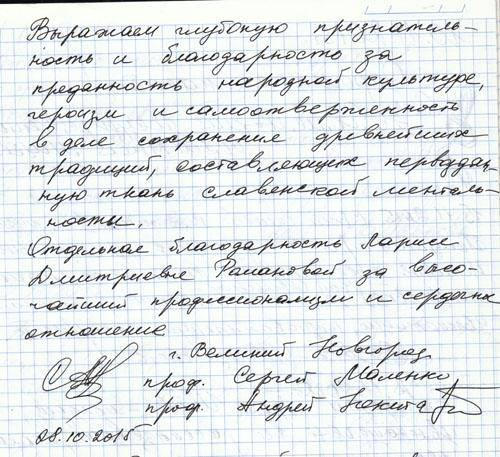 Выражаем глубокую признатель-
ность и благодарность за
преданность народной культуре,
героизм и самоотверженность
в деле сохранения древнейших
традиций, составляющих первоздан-
ную ткань славенской менталь-
ности.
Отдельная благодарность Ларисе
Дмитриевне Романовой за высо-
чайший профессионализм и сердечное
отношение
г. Великий Новгород
проф. Сергей Маленко
проф. Андрей Некита
08.10.2015